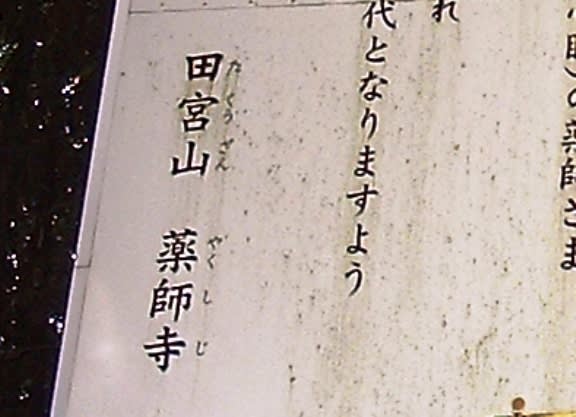 の薬師さま
れ
代となりますよう
田宮山 薬師寺
たぐうざん やくしじ